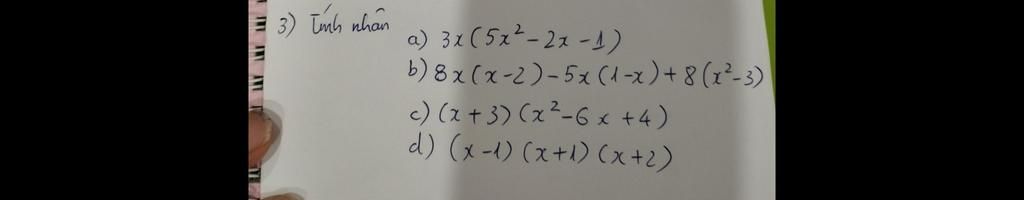 3) Tính nhân
a) 3x(5x² - 2x - 1)
b) 8x(x-2) - 5x(1-x) + 8(x²-3)
c) (x+3)(x²-6x+4)
d) (x-1)(x+1)(x+2)